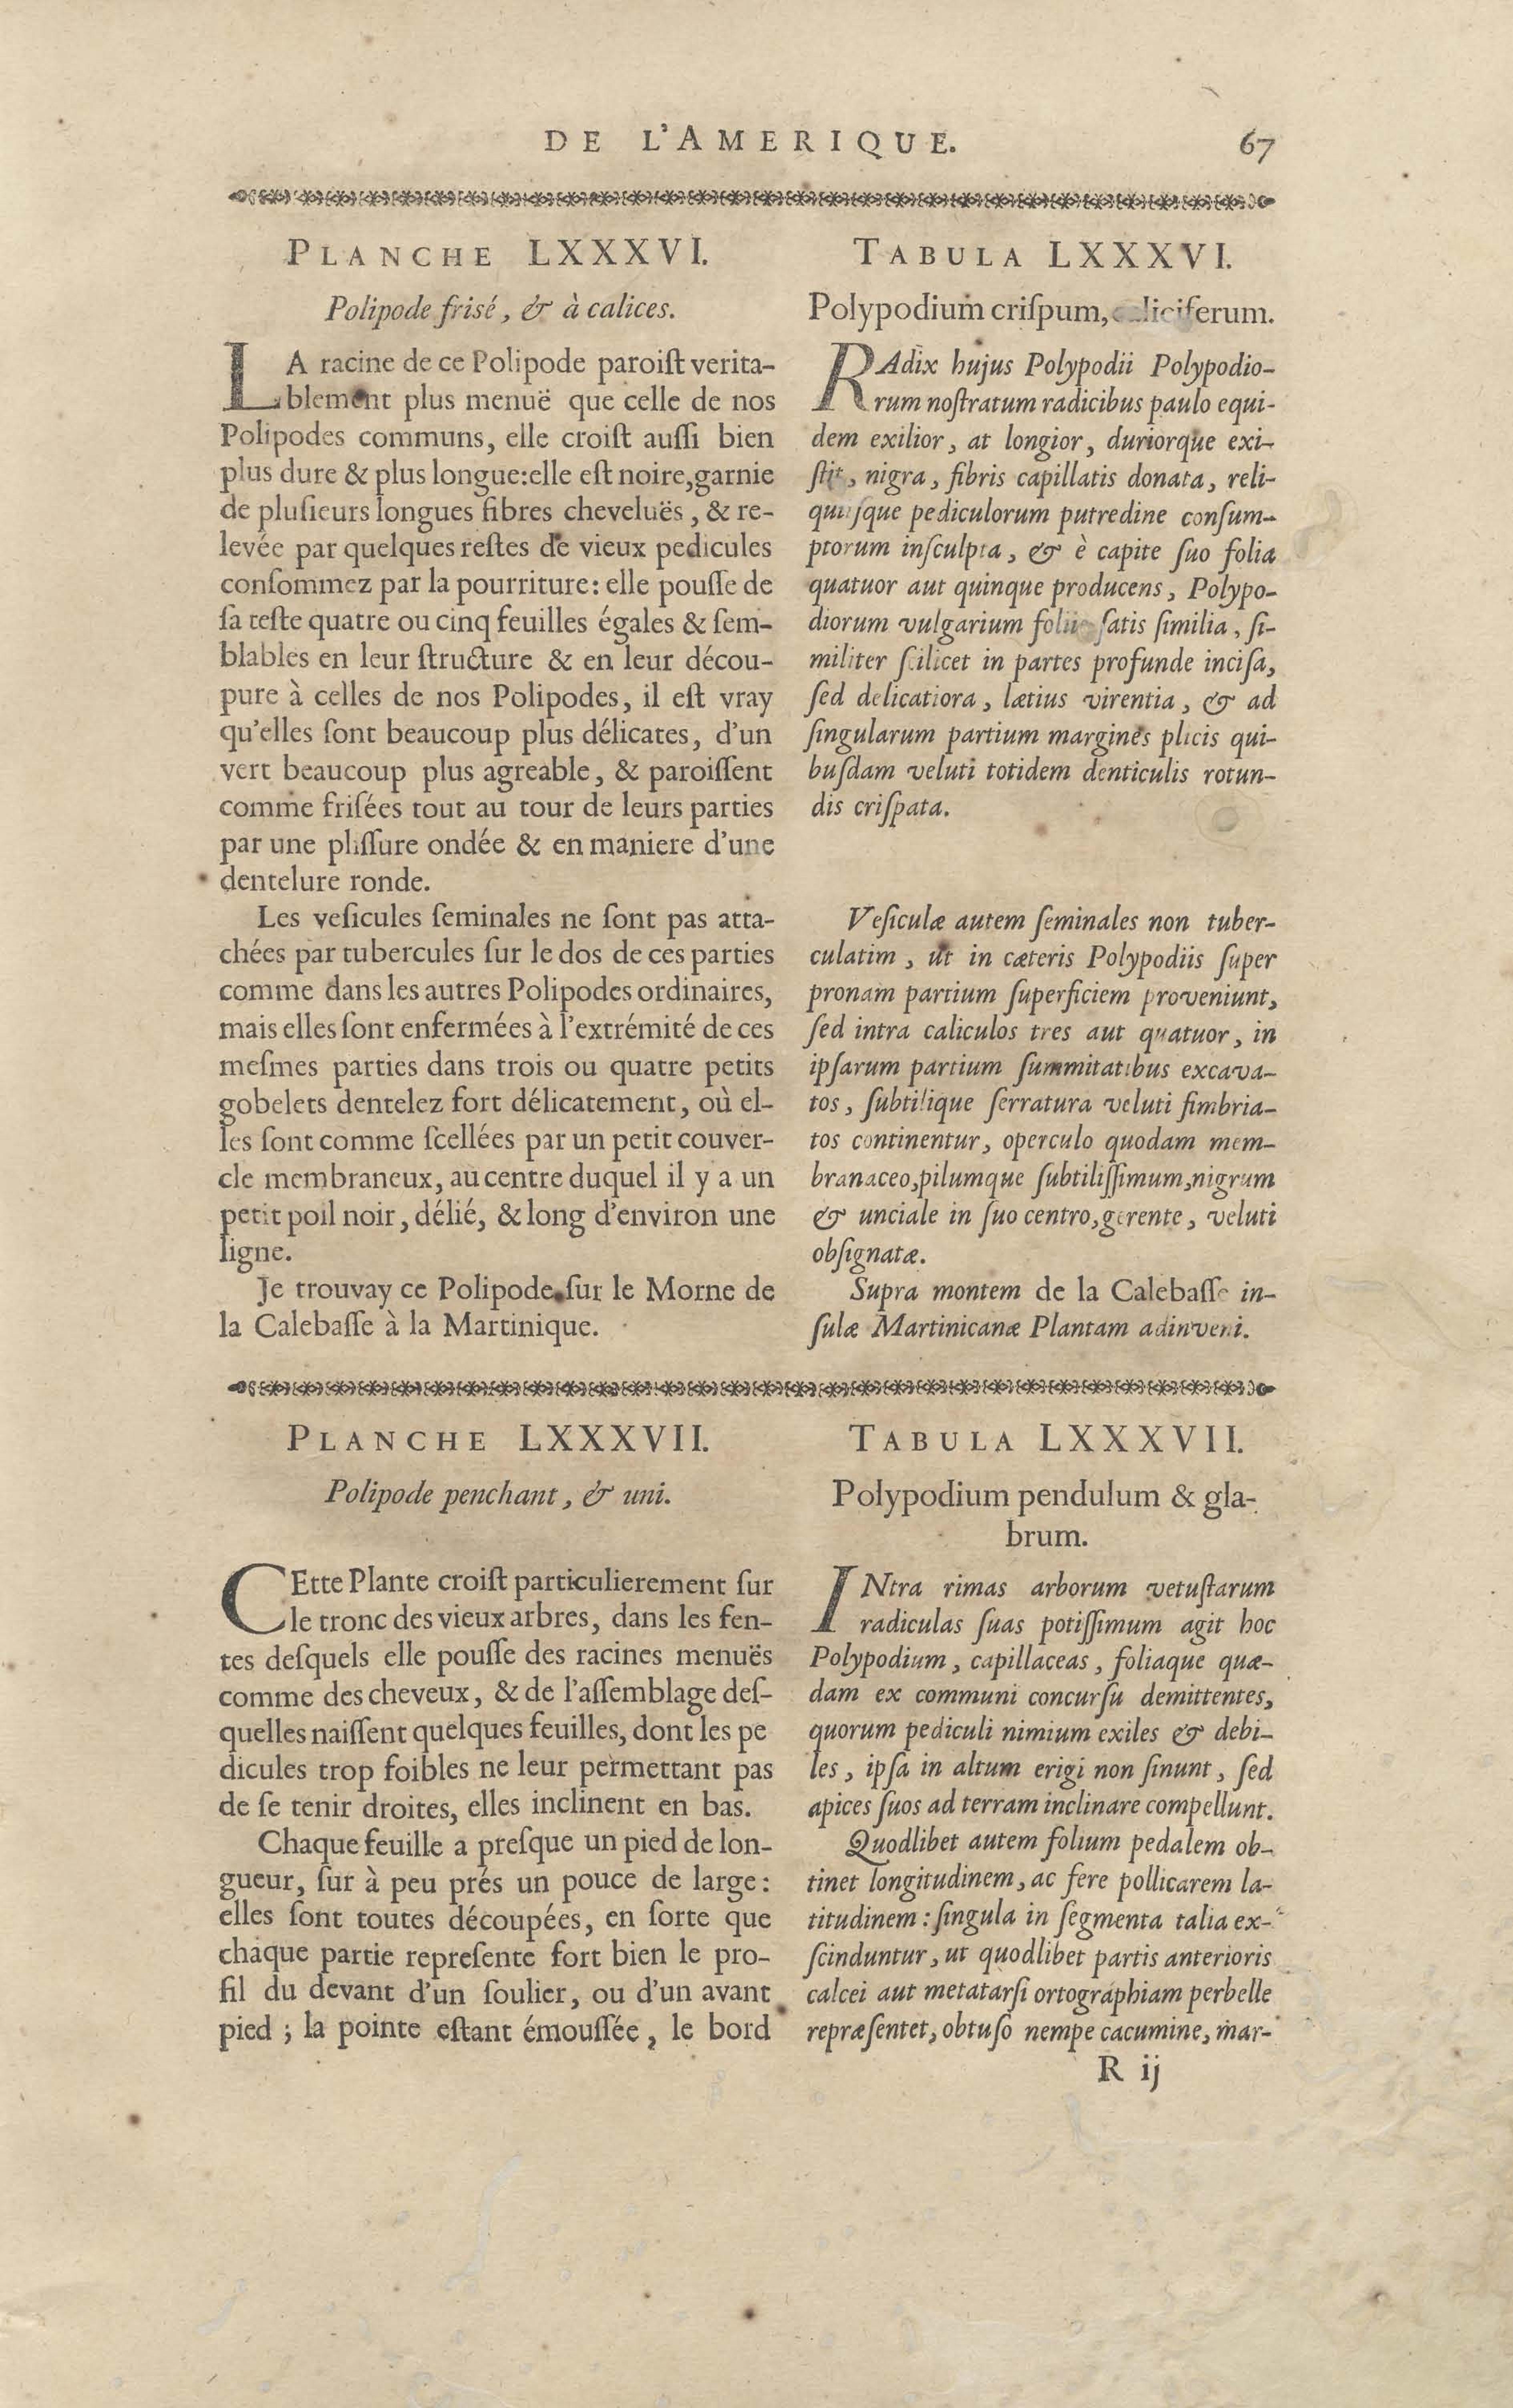 DE L'AMERIQUE. 67
PLANCHE LXXXVI.
Polipode frisé, & à calices.
LA racine de ce Polipode paroiſt verita-
blement plus menuë que celle de nos
Polipodes communs, elle croiſt auſſi bien
plus dure & plus longue:elle eſt noire,garnie
de pluſieurs longues fibres cheveluës, & re-
levée par quelques reſtes de vieux pedicules
conſommez par la pourriture: elle pouſſe de
ſa teſte quatre ou cinq feuilles égales & ſem-
blables en leur ſtructure & en leur décou-
pure à celles de nos Polipodes, il eſt vray
qu'elles ſont beaucoup plus délicates, d'un
vert beaucoup plus agreable, & paroiſſent
comme friſées tout au tour de leurs parties
par une pliſſure ondée & en maniere d'une
dentelure ronde.
Les veſicules ſeminales ne ſont pas atta-
chées par tubercules ſur le dos de ces parties
comme dans les autres Polipodes ordinaires,
mais elles ſont enfermées à l'extrémité de ces
meſmes parties dans trois ou quatre petits
gobelets dentelez fort délicatement, où el-
les ſont comme ſcellées par un petit couver-
cle membraneux, au centre duquel il y a un
petit poil noir, délié, & long d'environ une
ligne.
Je trouvay ce Polipode ſur le Morne de
la Calebaſſe à la Martinique.
TABULA LXXXVI.
Polypodium criſpum, caliciferum.
RAdix hujus Polypodii Polypodio-
rum noſtratum radicibus paulo equi-
dem exilior, at longior, duriorque exi-
ſtit, nigra, fibris capillatis donata, reli-
quiiſque pediculorum putredine conſum-
ptorum inſculpta, & è capite ſuo folia
quatuor aut quinque producens, Polypo-
diorum vulgarium foliis ſatis ſimilia, ſi-
militer ſcilicet in partes profunde inciſa,
ſed delicatiora, lætius virentia, & ad
ſingularum partium margines plicis qui-
buſdam veluti totidem denticulis rotun-
dis criſpata.
Veſiculæ autem ſeminales non tuber-
culatim, ut in cæteris Polypodiis ſuper
pronam partium ſuperficiem proveniunt,
ſed intra caliculos tres aut quatuor, in
ipſarum partium ſummitatibus excava-
tos, ſubtilique ſerratura veluti fimbria-
tos continentur, operculo quodam mem-
branaceo,pilumque ſubtiliſſimum,nigrum
& unciale in ſuo centro,gerente, veluti
obſignatæ.
Supra montem de la Calebaſſe in-
ſulæ Martinicanæ Plantam adinveni.
PLANCHE LXXXVII.
Polipode penchant, & uni.
CEtte Plante croiſt particulierement ſur
le tronc des vieux arbres, dans les fen-
tes deſquels elle pouſſe des racines menuës
comme des cheveux, & de l'aſſemblage deſ-
quelles naiſſent quelques feuilles, dont les pe
dicules trop foibles ne leur permettant pas
de ſe tenir droites, elles inclinent en bas.
Chaque feuille a preſque un pied de lon-
gueur, ſur à peu prés un pouce de large:
elles ſont toutes découpées, en ſorte que
chaque partie repreſente fort bien le pro-
fil du devant d'un ſoulier, ou d'un avant
pied; la pointe eſtant émouſſée, le bord
TABULA LXXXVII.
Polypodium pendulum & gla-
brum.
INtra rimas arborum vetuſtarum
radiculas ſuas potiſſimum agit hoc
Polypodium, capillaceas, foliaque quæ-
dam ex communi concurſu demittentes,
quorum pediculi nimium exiles & debi-
les, ipſa in altum erigi non ſinunt, ſed
apices ſuos ad terram inclinare compellunt.
Quodlibet autem folium pedalem ob-
tinet longitudinem, ac fere pollicarem la-
titudinem: ſingula in ſegmenta talia ex-
ſcinduntur, ut quodlibet partis anterioris
calcei aut metatarſi ortographiam perbelle
repræſentet, obtuſo nempe cacumine, mar-
R ij